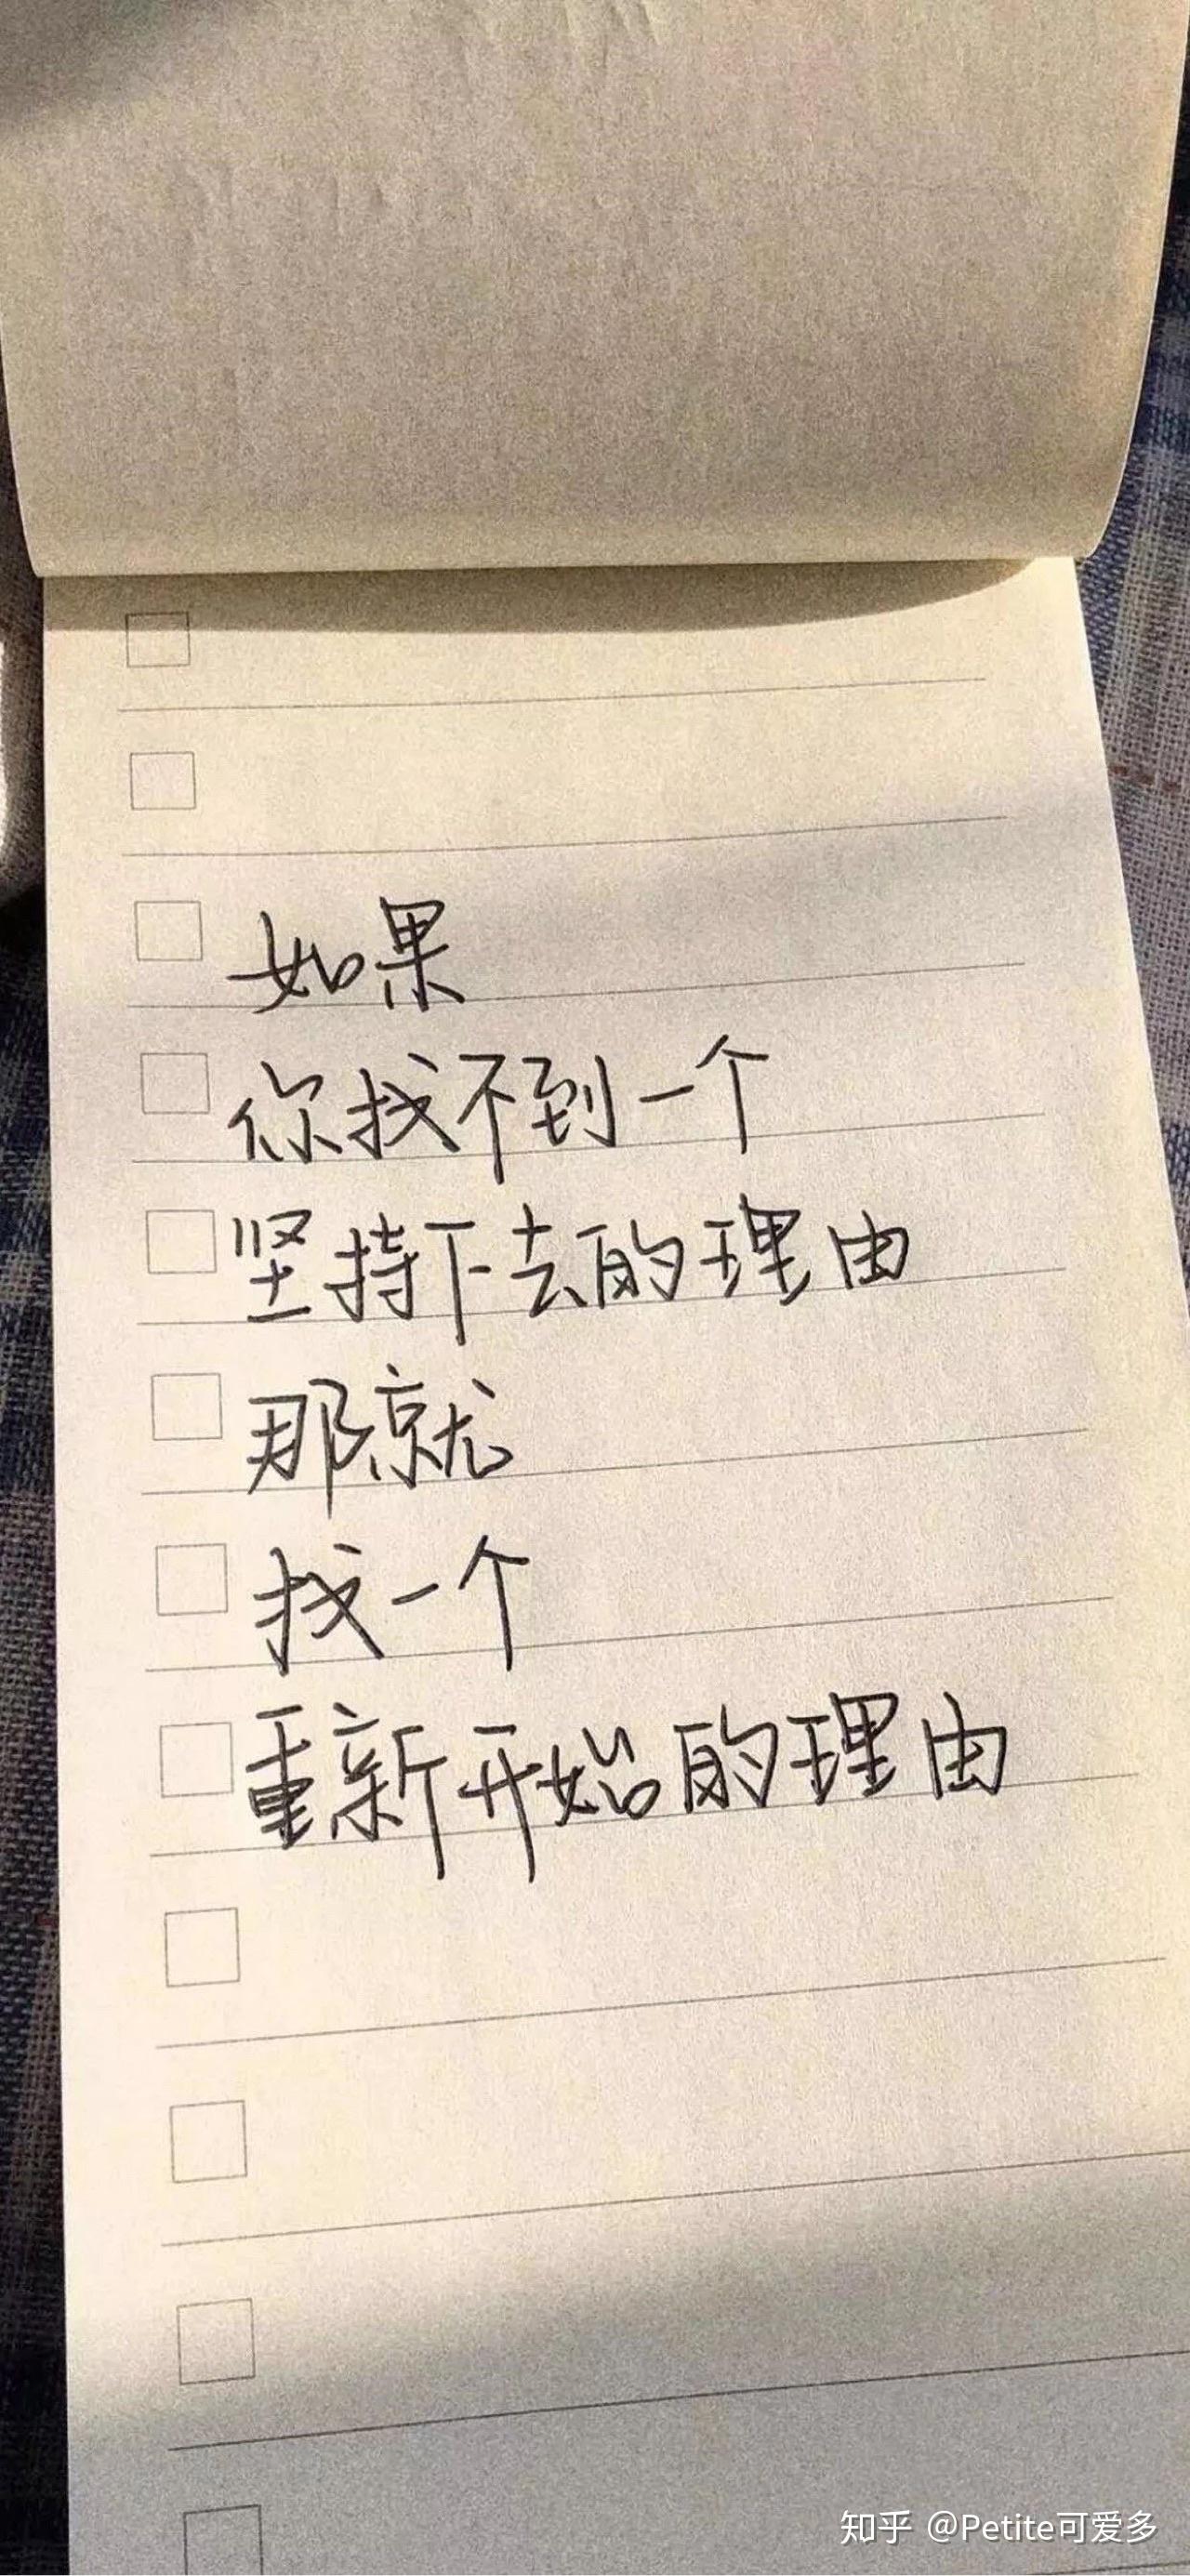 如果
你找不到一个
坚持下去的理由
那就
找一个
重新开始的理由
知乎 @Petite可爱多